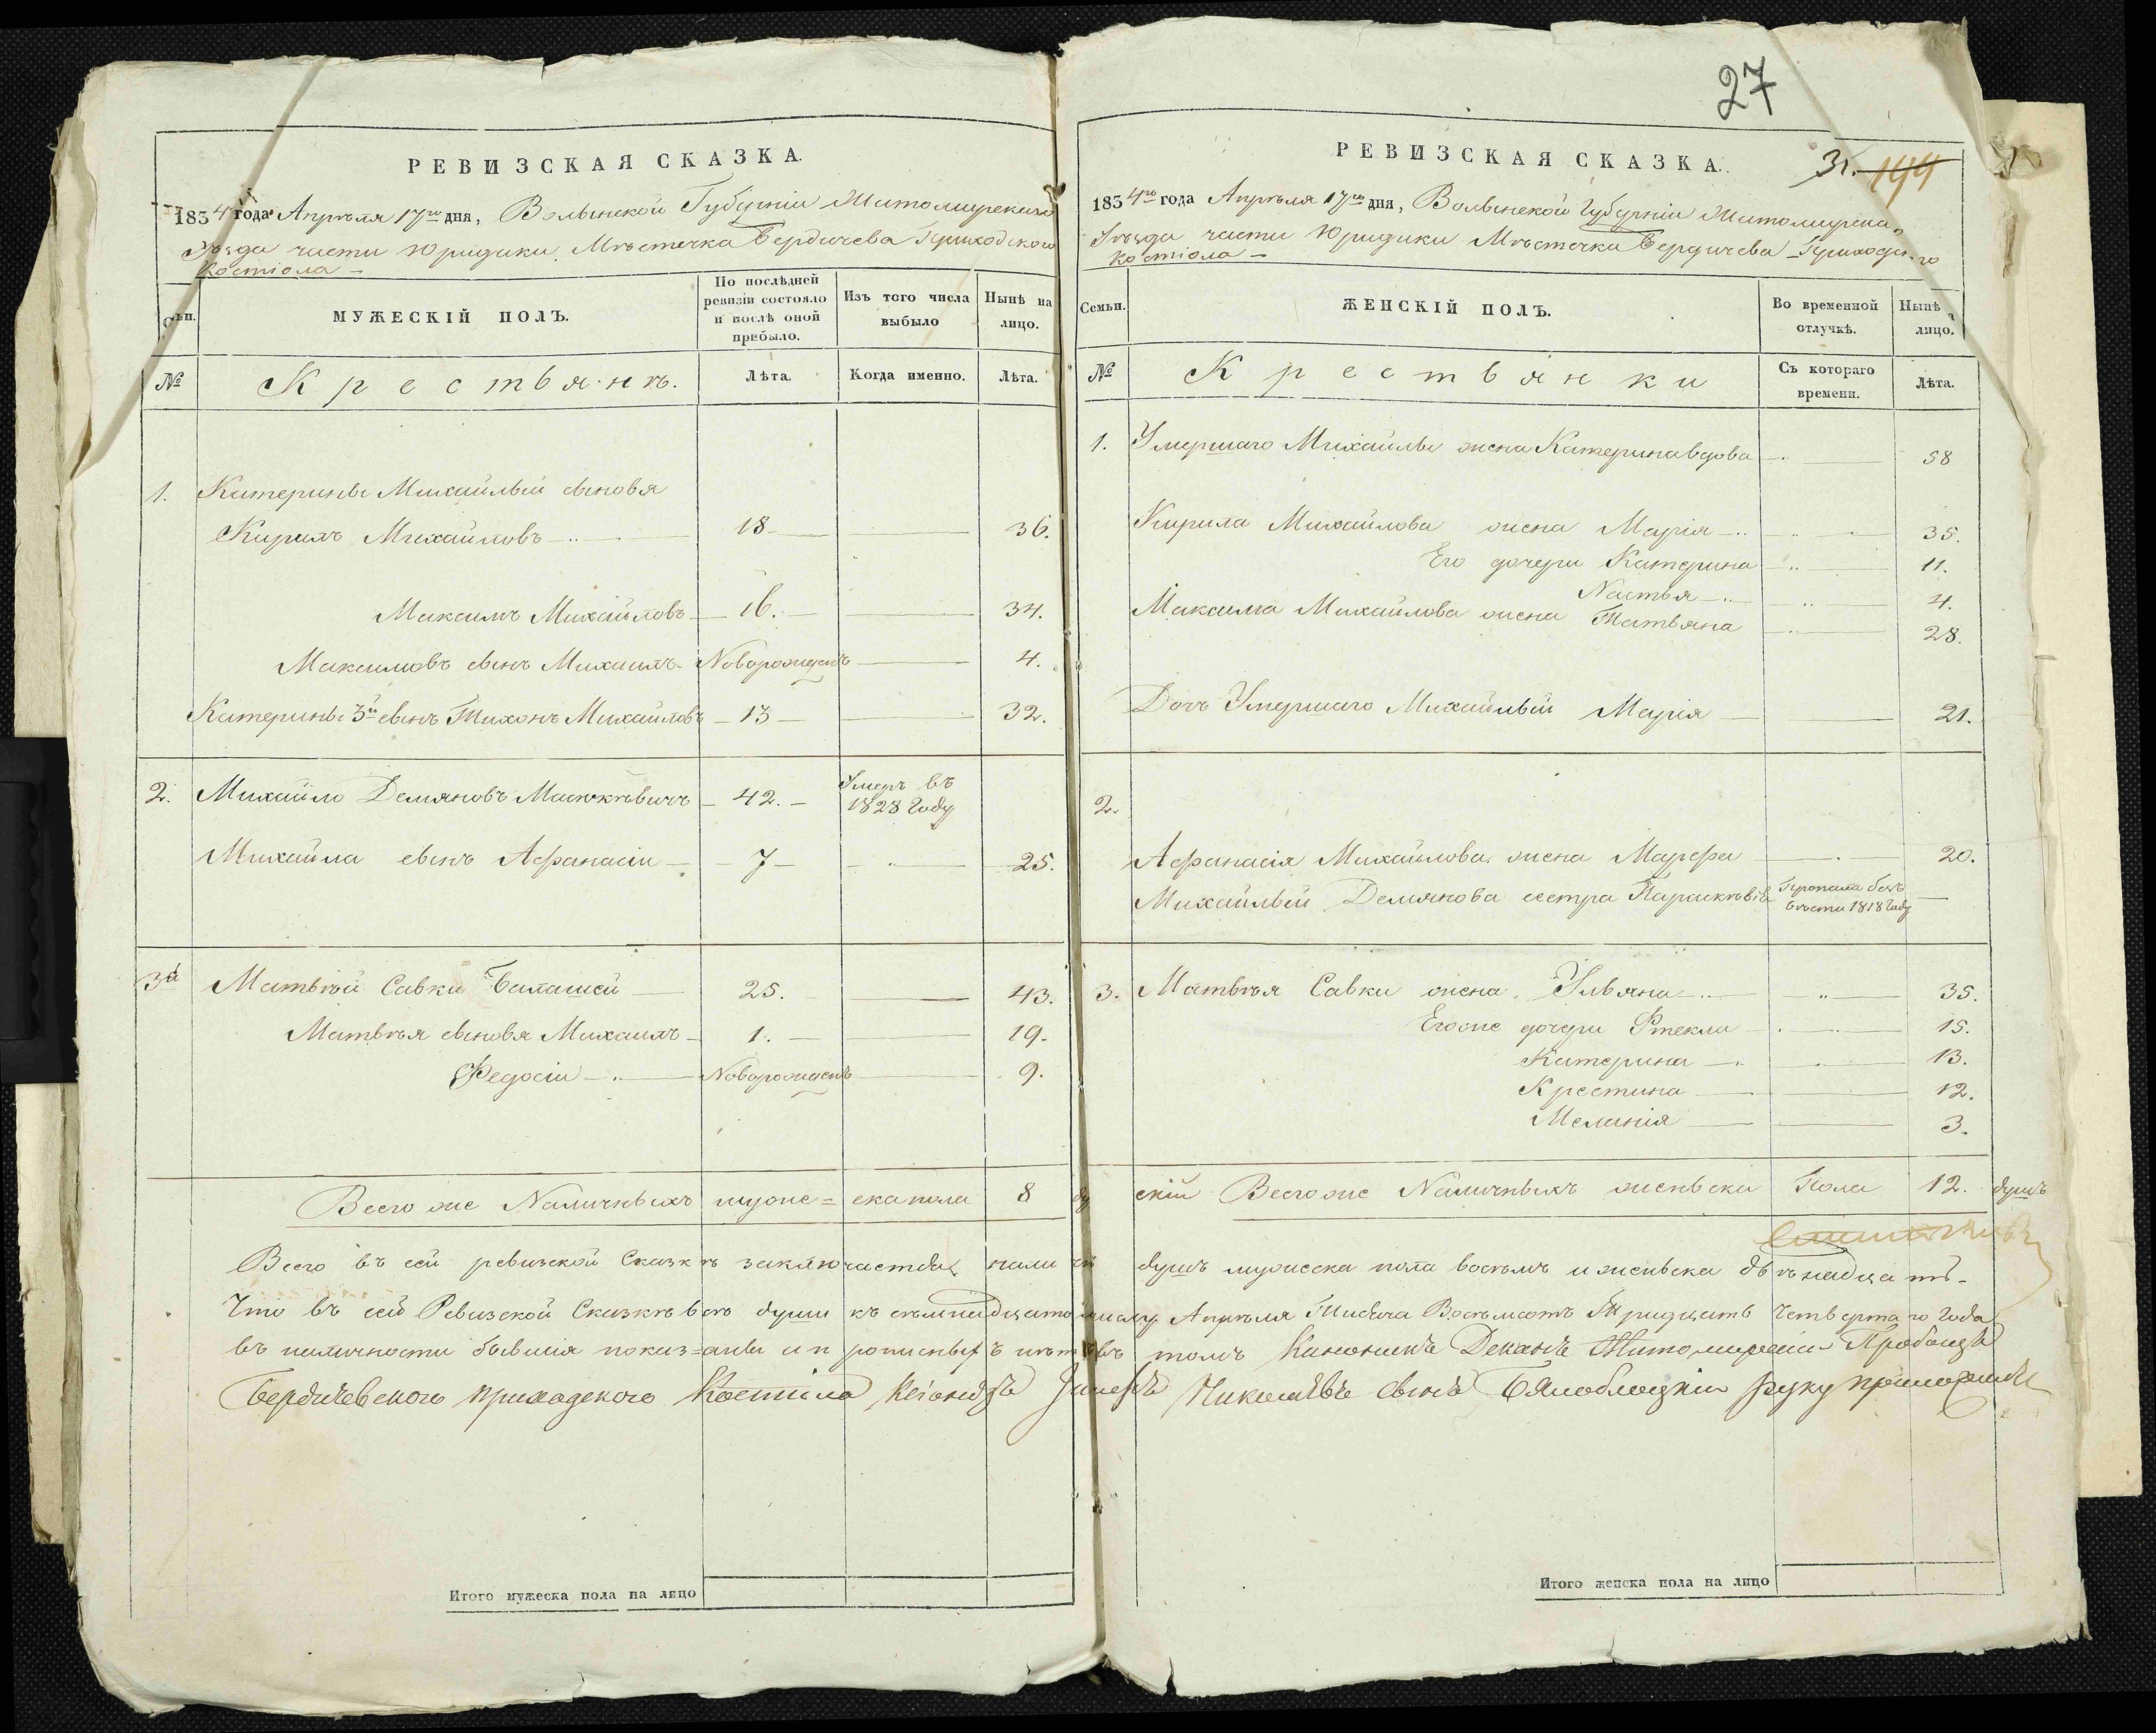 27
РЕВИЗСКАЯ СКАЗКА.
1834 года Апрѣля 17го дня, Волынской Губерніи Житомирскаго
Уѣзда части Юридики Мѣстечка Бердичева Приходского
Костіола
МУЖЕСКІЙ ПОЛЪ.
По послѣдней ревизіи состояло и послѣ оной прибыло.
Изъ того числа выбыло
Нынѣ на лицо.
№
Крестьянъ.
Лѣта.
Когда именно.
Лѣта.
1. Катерины Михайлый сыновя
Кирилъ Михайловъ 18 36.
Максимъ Михайловъ 16. 34.
Максимовъ сынъ Михаилъ Новорожденъ 4.
Катерины 3й сынъ Тихонъ Михайловъ 13 32.
2. Михайло Демяновъ Масюкѣвичъ 42. Умеръ въ 1828 Году
Михайла сынъ Афанасіи 7 25.
3й Матвѣй Савки Балашей 25. 43.
Матвѣя сыновя Михаилъ 1. 19.
Федосіи Новорожденъ 9.
Всего же Наличныхъ мужеска пола 8 ду
РЕВИЗСКАЯ СКАЗКА.
31. 144
1834го года Апрѣля 17го дня, Волынской Губерніи Житомирска,,
Уѣзда части Юридики Мѣстечка Бердичева Приходск.го
Костіола
Семьи.
ЖЕНСКІЙ ПОЛЪ.
Во временной отлучкѣ.
Нынѣ лицо.
№
Крестьянки
Съ котораго времени.
Лѣта.
1. Умершаго Михайлы жена Катерина вдова 58
Кирила Михайлова жена Марія 35.
Его дочери Катерина 11.
Настья 4.
Максима Михайлова жена Татьяна 28.
Доч Умершаго Михайлый Марія 21.
2.
Афанасія Михайлова жена Марфа 20.
Михайлый Демянова сестра Параскѣвія Пропала безъ вѣсти 1818 Году
3. Матвѣя Савки жена Ульяна 35.
Егоже дочери Фтекли 15.
Катерина 13.
Крестина 12.
Меланія 3.
скій Всего же Наличныхъ женьска Пола 12. душъ
Всего въ сей ревизской Сказкѣ заключается нали чн душъ мужеска пола восъмъ и женьска двѣнадцать
Что въ сей Ревизской Сказкѣ всѣ души къ семнадцатому числу Апрѣля Тисеча Восъмсотъ Тридцать Четвертаго Года
въ наличности бывшія показаны и прописныхъ нѣтъ въ томъ Каноникъ Деканъ Житомирскій Пробощъ
Бердичевского приходского Костіола Ксіондзъ Николаевъ сынъ Бялоблоцкій руку приложилъ
Итого мужеска пола на лицо
Итого женска пола на лицо